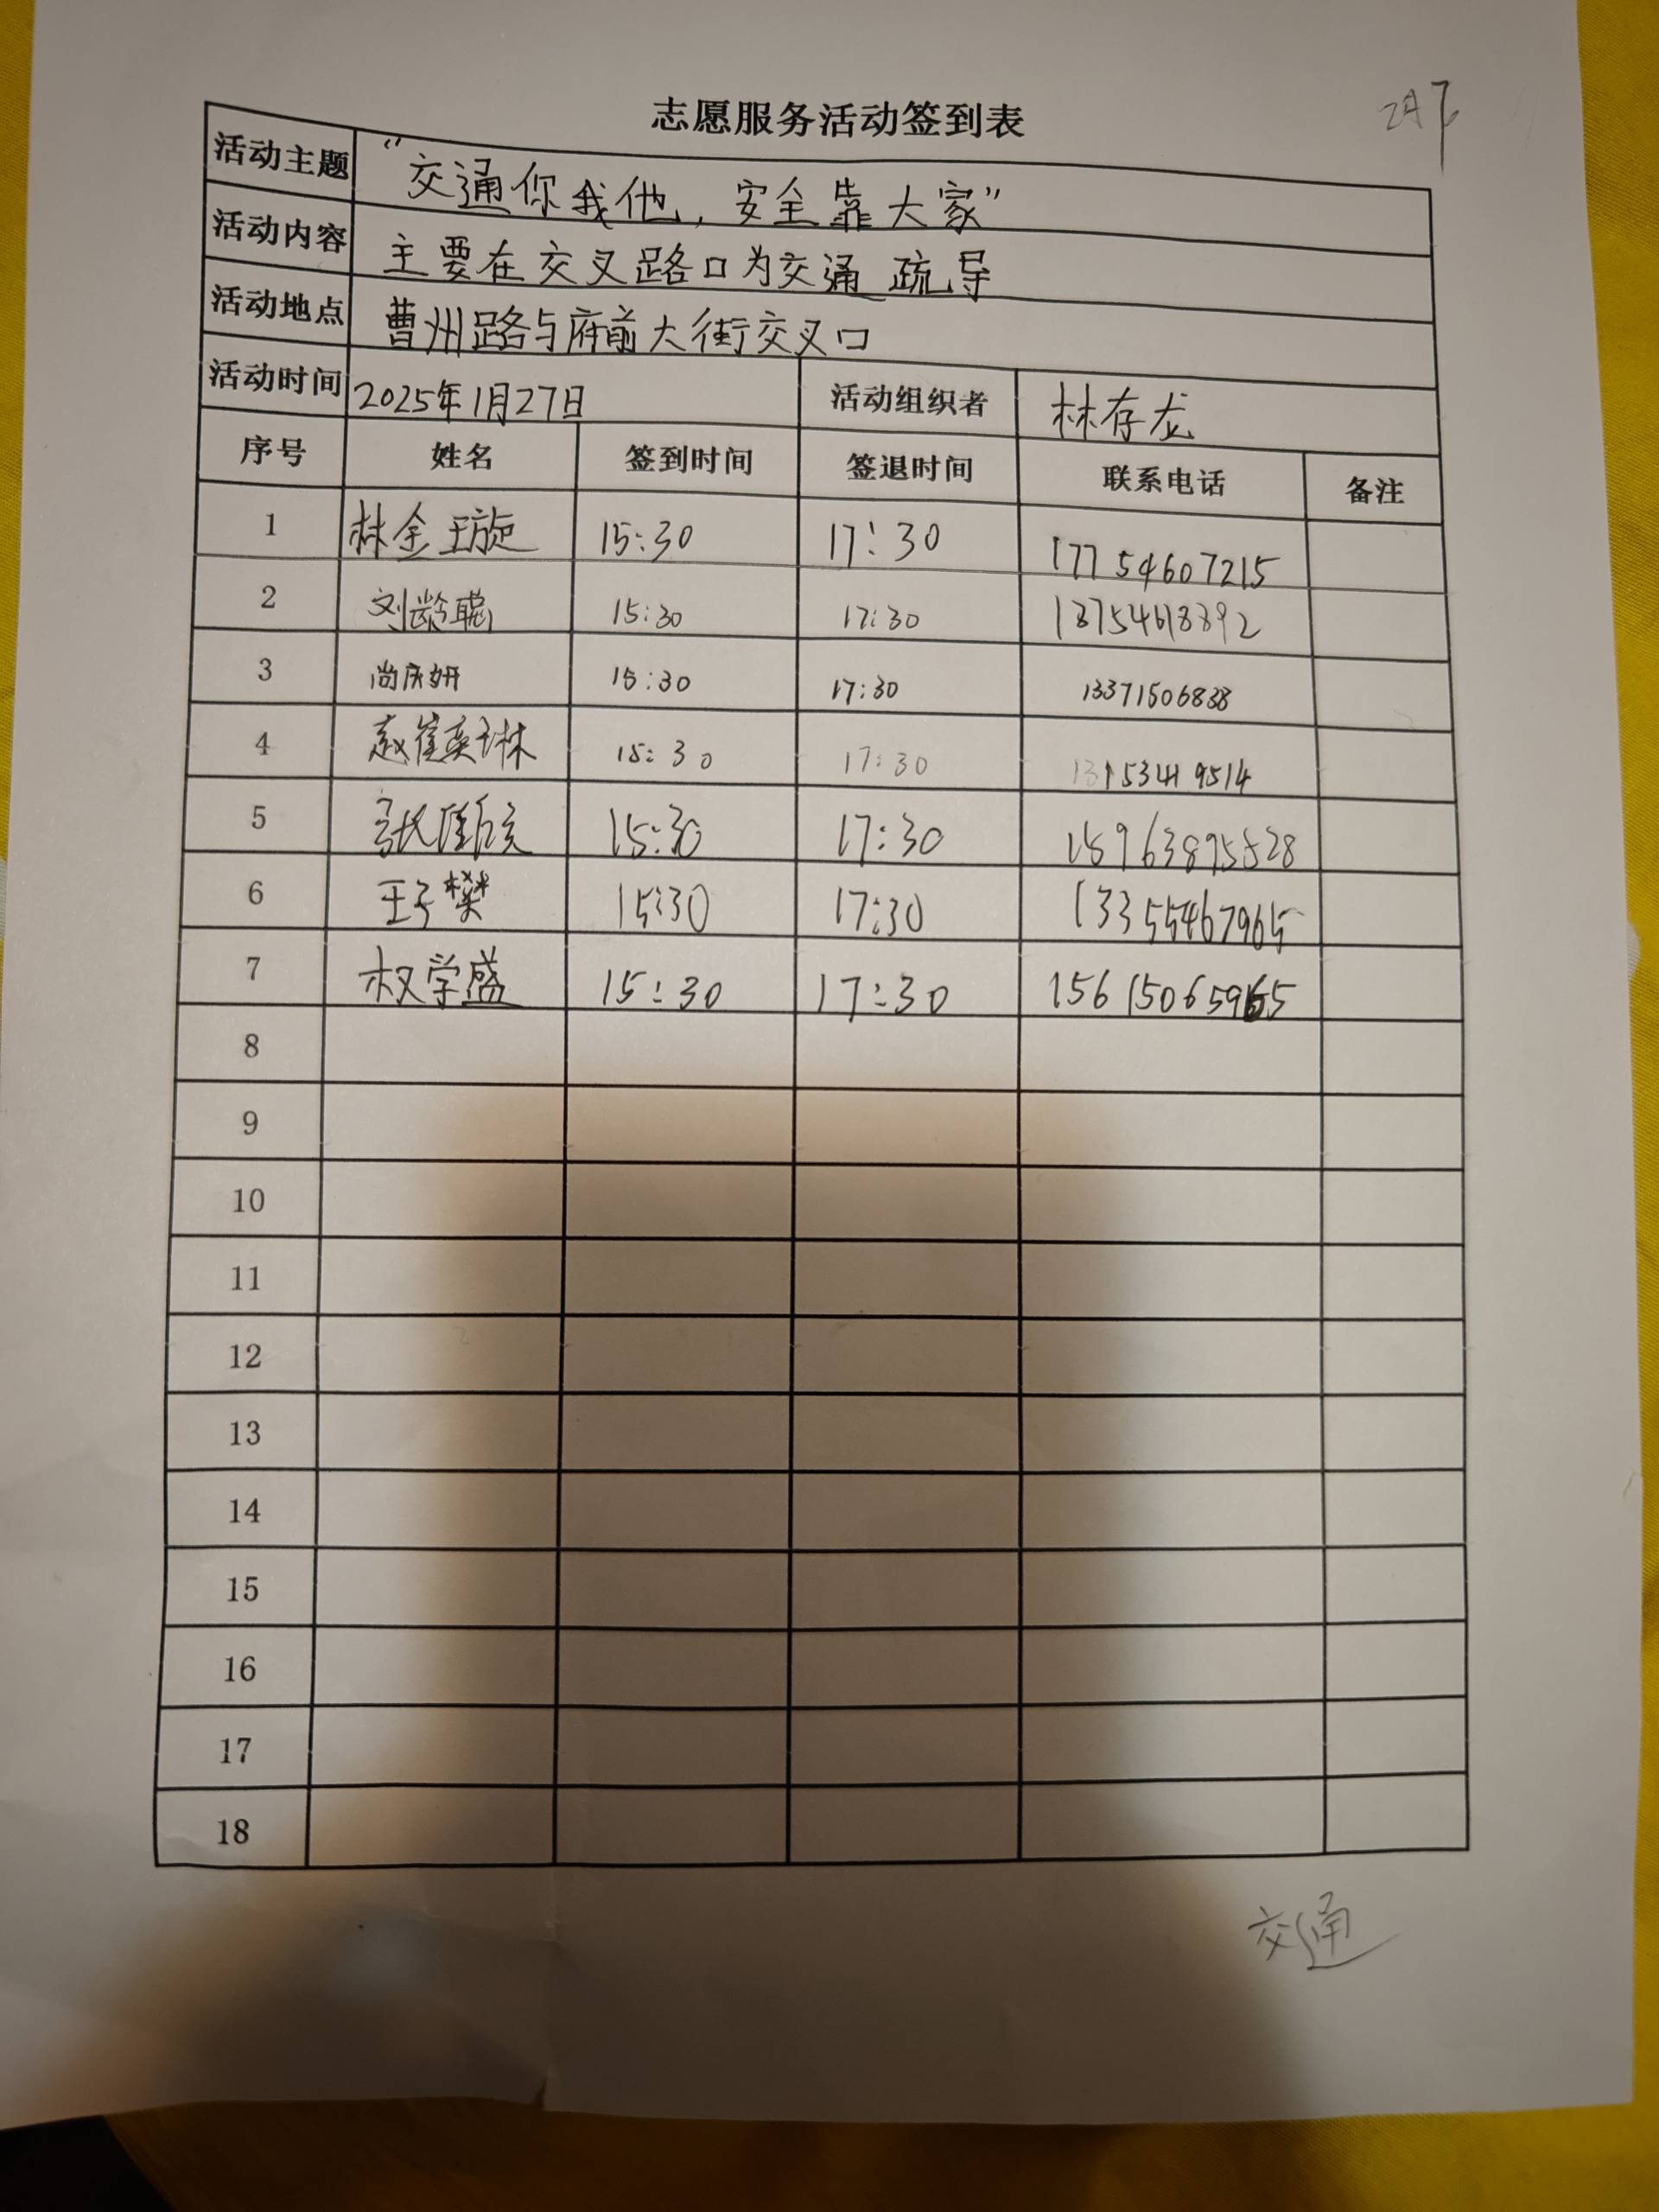 志愿服务活动签到表
2月
活动主题 “交通你我他，安全靠大家”
活动内容 主要在交叉路口为交通疏导
活动地点 曹州路与府前大街交叉口
活动时间 2025年1月27日 活动组织者 林存龙
序号 姓名 签到时间 签退时间 联系电话 备注
1 林金璇 15:30 17:30 17754607215
2 刘龄聪 15:30 17:30 18754618892
3 尚庆妍 15:30 17:30 13371506838
4 赵崔英琳 15:30 17:30
5 张 15:30 17:30 15963895828
6 王子樊 15:30 17:30 13355467965
7 权学盛 15:30 17:30
8
9
10
11
12
13
14
15
16
17
18
交通